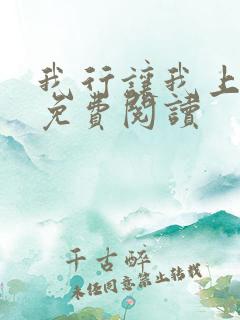 我行讓我上
免費閱讀
千古醉
未经同意禁止转载